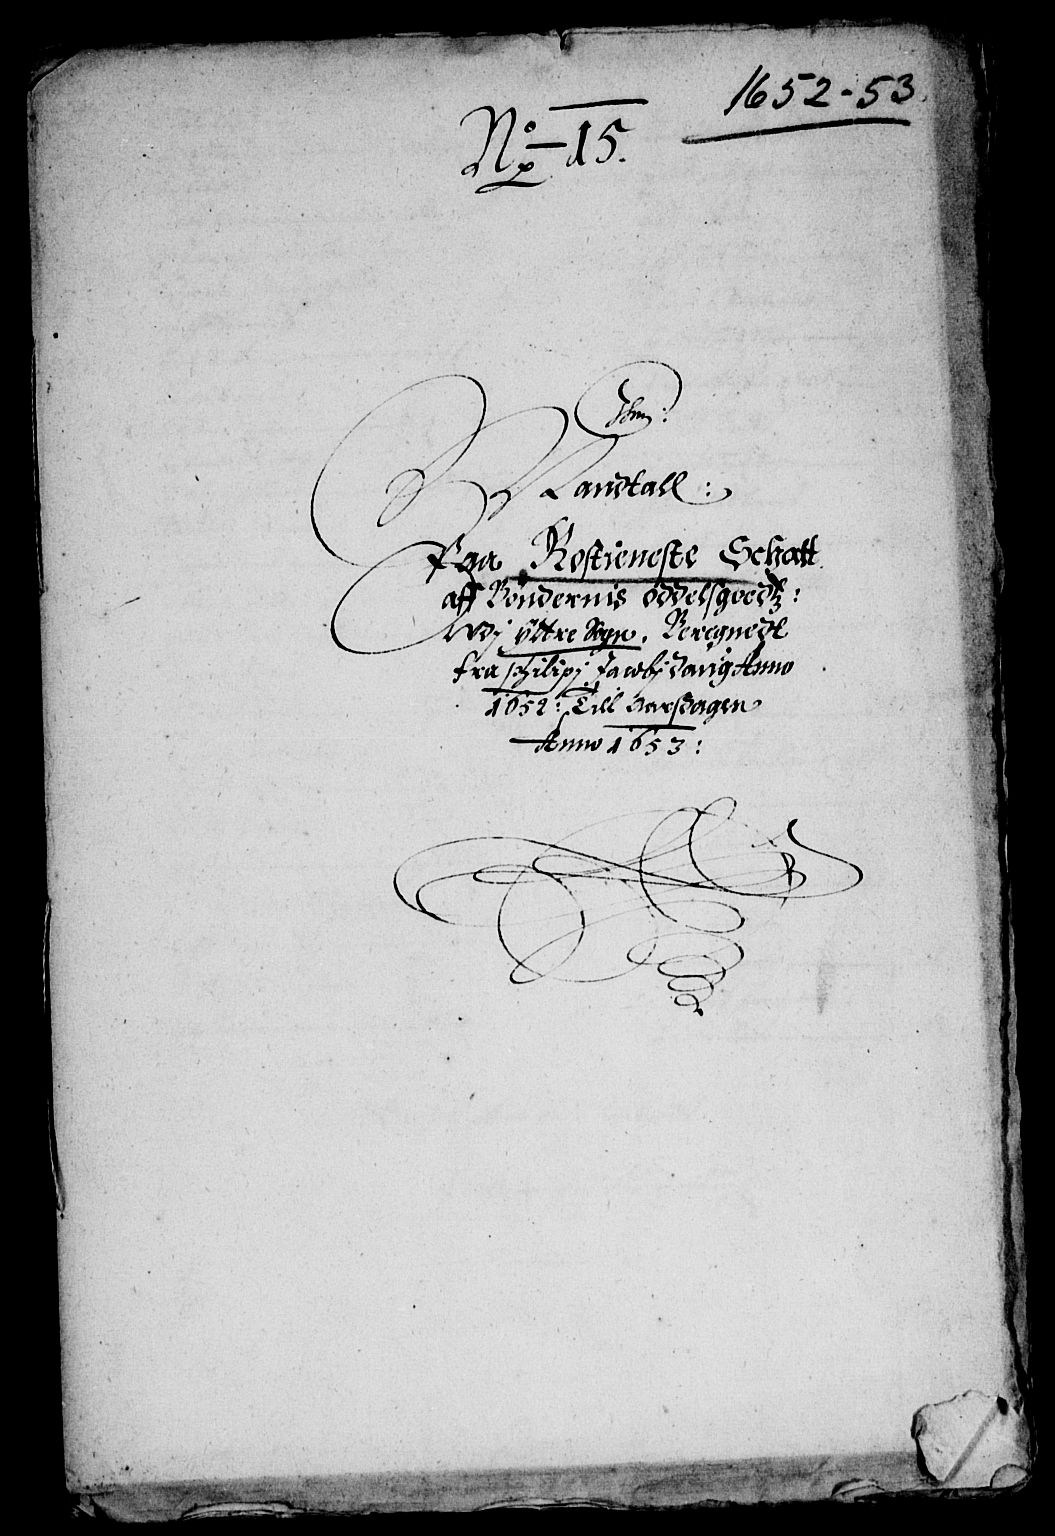 1652-53.
No 15.
Mandtall:
Paa Rostieneste Schatt
aff Bøndernis oddelsgoedtz:
Vdj Yttre Sogn, Beregnedt
fra Philipj Jacobj daug Anno
1652: Till aarsdagen
Anno 1653: